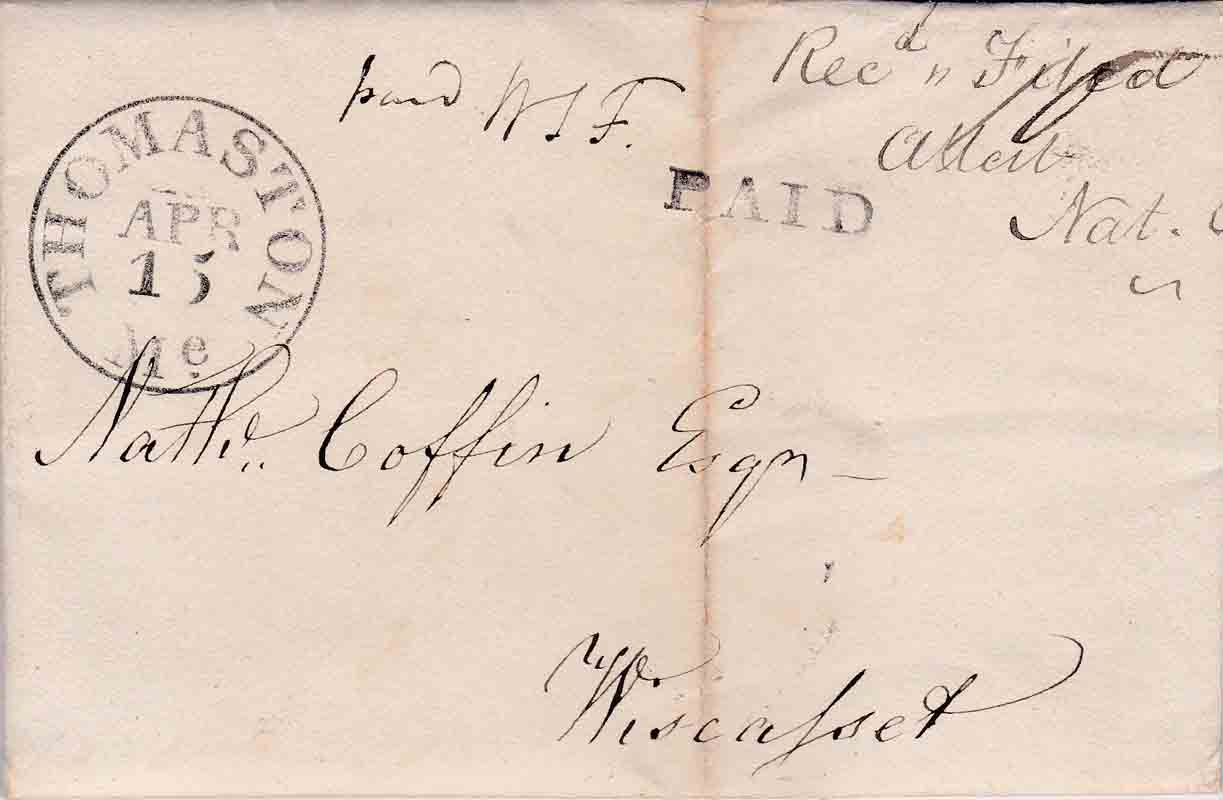 Rec^d n Filed
paid W S F.
Attest
PAID
Nat.
THOMASTON
APR
15
Me.
Nath^l. Coffin Esqr
Wiscasset